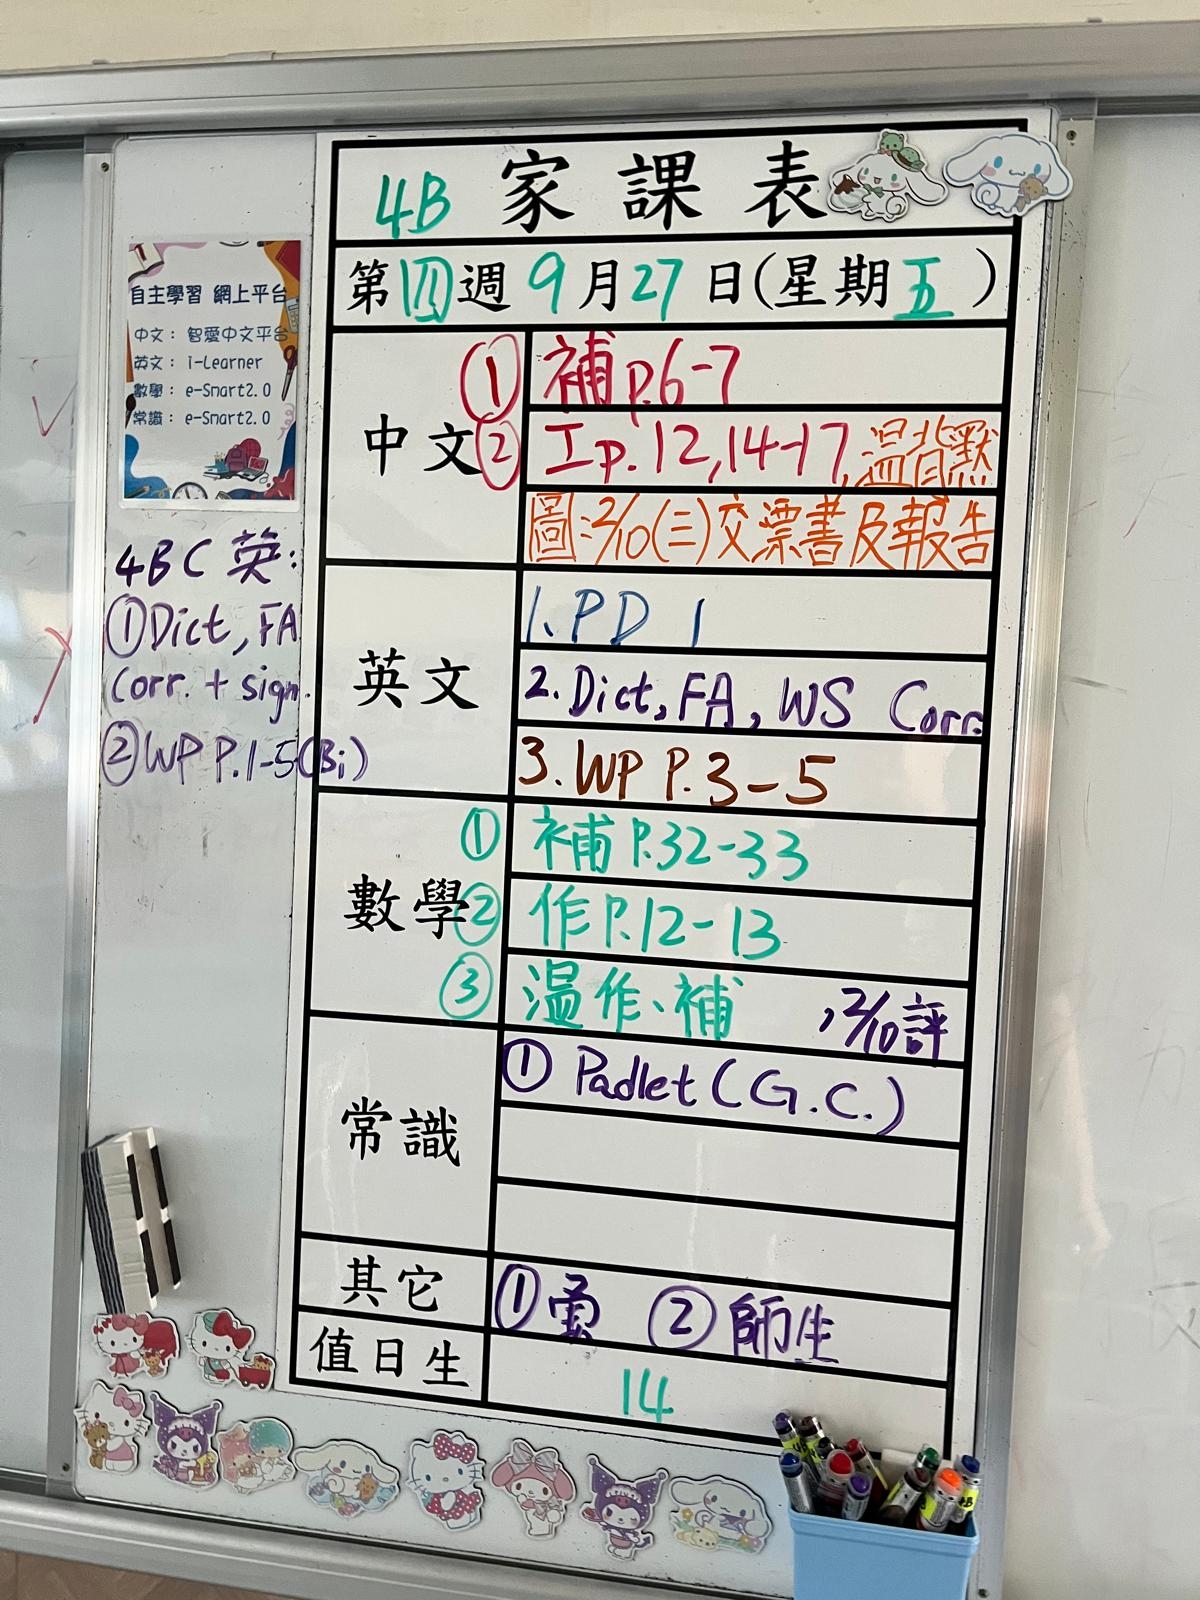 4B 家課表
第四週9月27日(星期五)
自主學習 網上平台
中文： 智愛中文平台
英文： i-Learner
數學： e-Smart2.0
常識： e-Smart2.0
4BC 英:
①Dict, FA
Corr. + sign.
②WP P.1-5(Bi)
中文
① 補p.6-7
② 工p.12,14-17,溫背默
圖:2/10(三)交票書及報告
英文
1.PD 1
2.Dict, FA, WS Corr.
3.WP P.3-5
數學
① 補P.32-33
② 作P.12-13
③ 溫作、補 ,2/10評
常識
① Padlet(G.C.)
其它
① ② 師生
值日生
14